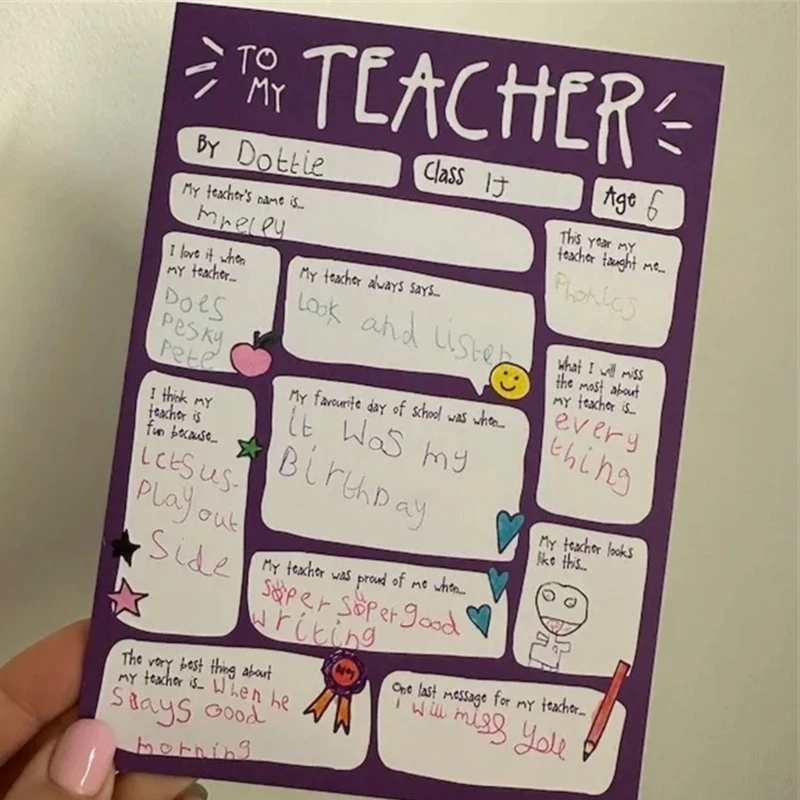 TO MY TEACHER
BY Dottie
Class 1J
Age 6
My teacher's name is...
mreley
This year my
teacher taught me...
Phonics
I love it when
my teacher...
Does
Pesky
Pete
My teacher always says...
Look and listen
What I will miss
the most about
my teacher is...
every
thing
I think my
teacher is
fun because...
Letsus
Play out
Side
My favourite day of school was when...
it was my
Birthday
My teacher looks
like this...
My teacher was proud of me when...
super super good
writing
The very best thing about
my teacher is... When he
Says Good
morning
One last message for my teacher...
I will miss You